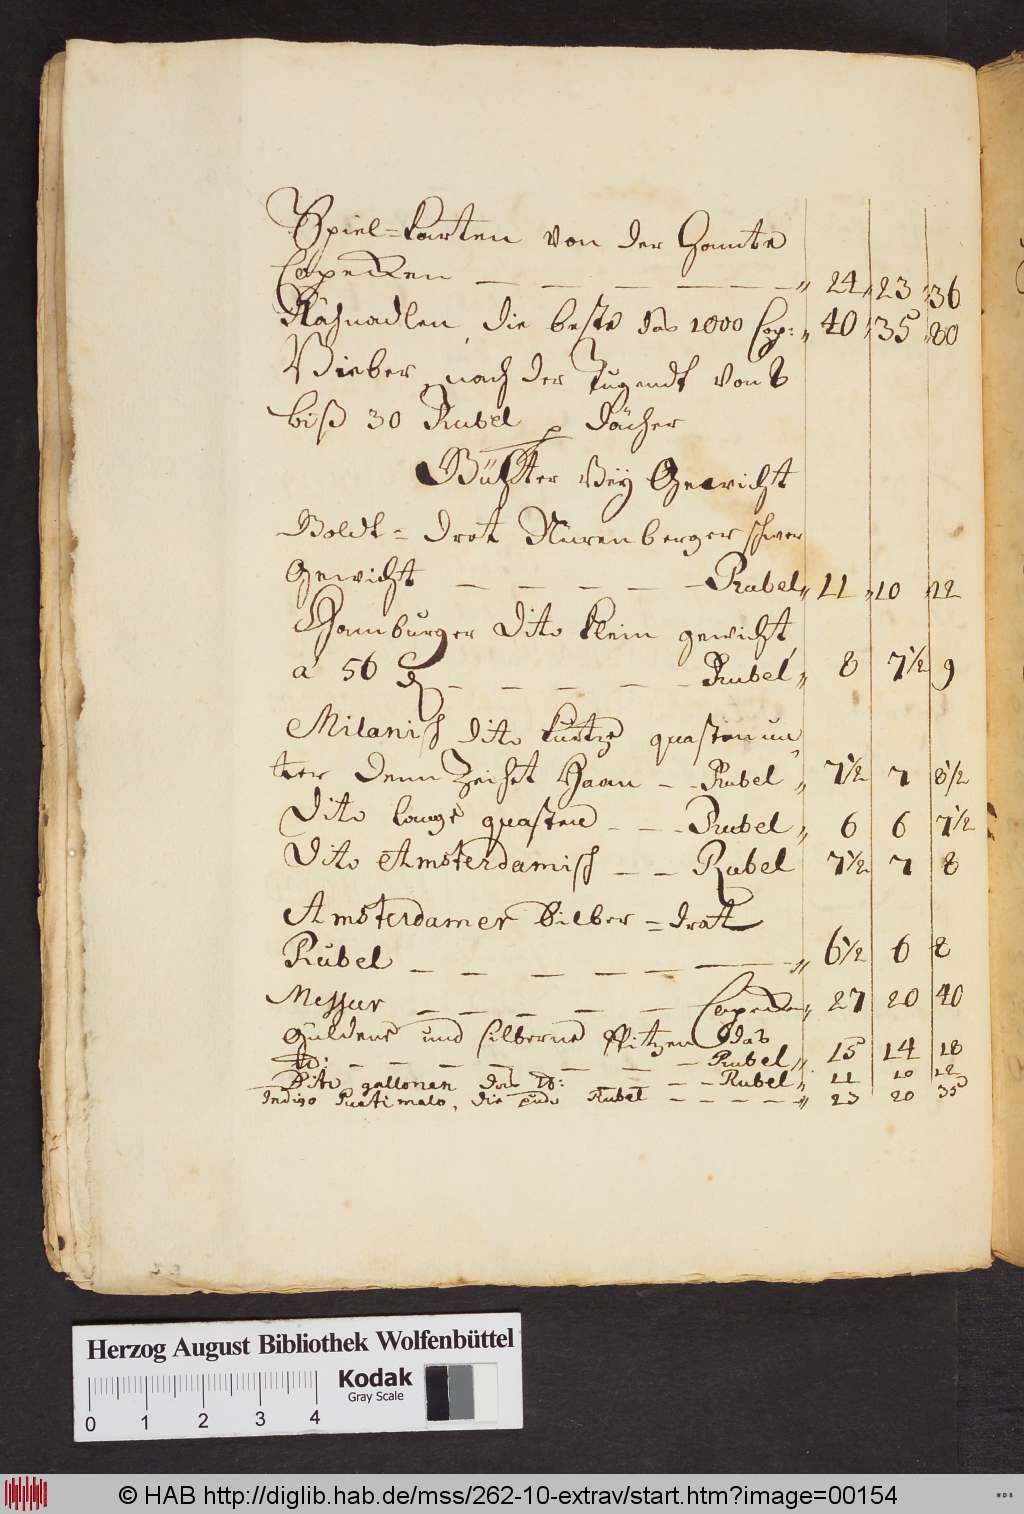 Spiel=Karten von der Hamte
Copecken — — — — — — " 24 " 23 " 36
Nähnadlen, die beste das 1000 Cop: " 40 " 35 " 80
Bieber nach der Tugendt von 8
biß 30 Rubel p Dächer
Güther Bey Gewicht
Goldt = drat Nürenberger schwer
Gewicht — — — — — Rubel " 11 " 10 " 12
Hamburger Dito klein gewicht
a 56 — — — — — Rubel " 8 7½ 9
Milanisch dito kurtze quasten un
ter denn Zeichet Haan — — Rubel " 7½ 7 8½
Dito lange quasten — — — Rubel " 6 6 7½
Dito Amsterdamisch — — Rubel 7½ 7 8
Amsterdamer Silber = drat
Rubel — — — — — — — " 6½ 6 8
Messer — — — — — Copecken " 27 20 40
Güldene und silberne Spitzen das
— — — — — — Rubel " 15 14 18
Dito gallonen das — — — Rubel " 11 10 12
Indigo Guatimalo, die pudt Rubel — — — — " 23 20 35
Herzog August Bibliothek Wolfenbüttel
Kodak
Gray Scale
0 1 2 3 4
© HAB http://diglib.hab.de/mss/262-10-extrav/start.htm?image=00154